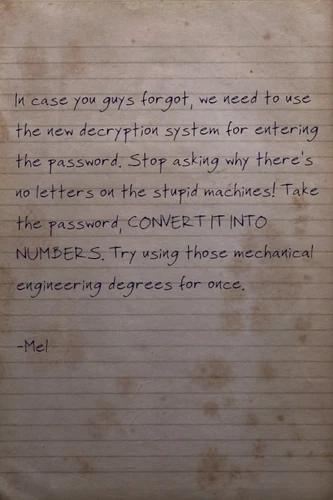 In case you guys forgot, we need to use
the new decryption system for entering
the password. Stop asking why there's
no letters on the stupid machines! Take
the password, CONVERT IT INTO
NUMBERS. Try using those mechanical
engineering degrees for once.
-Mel